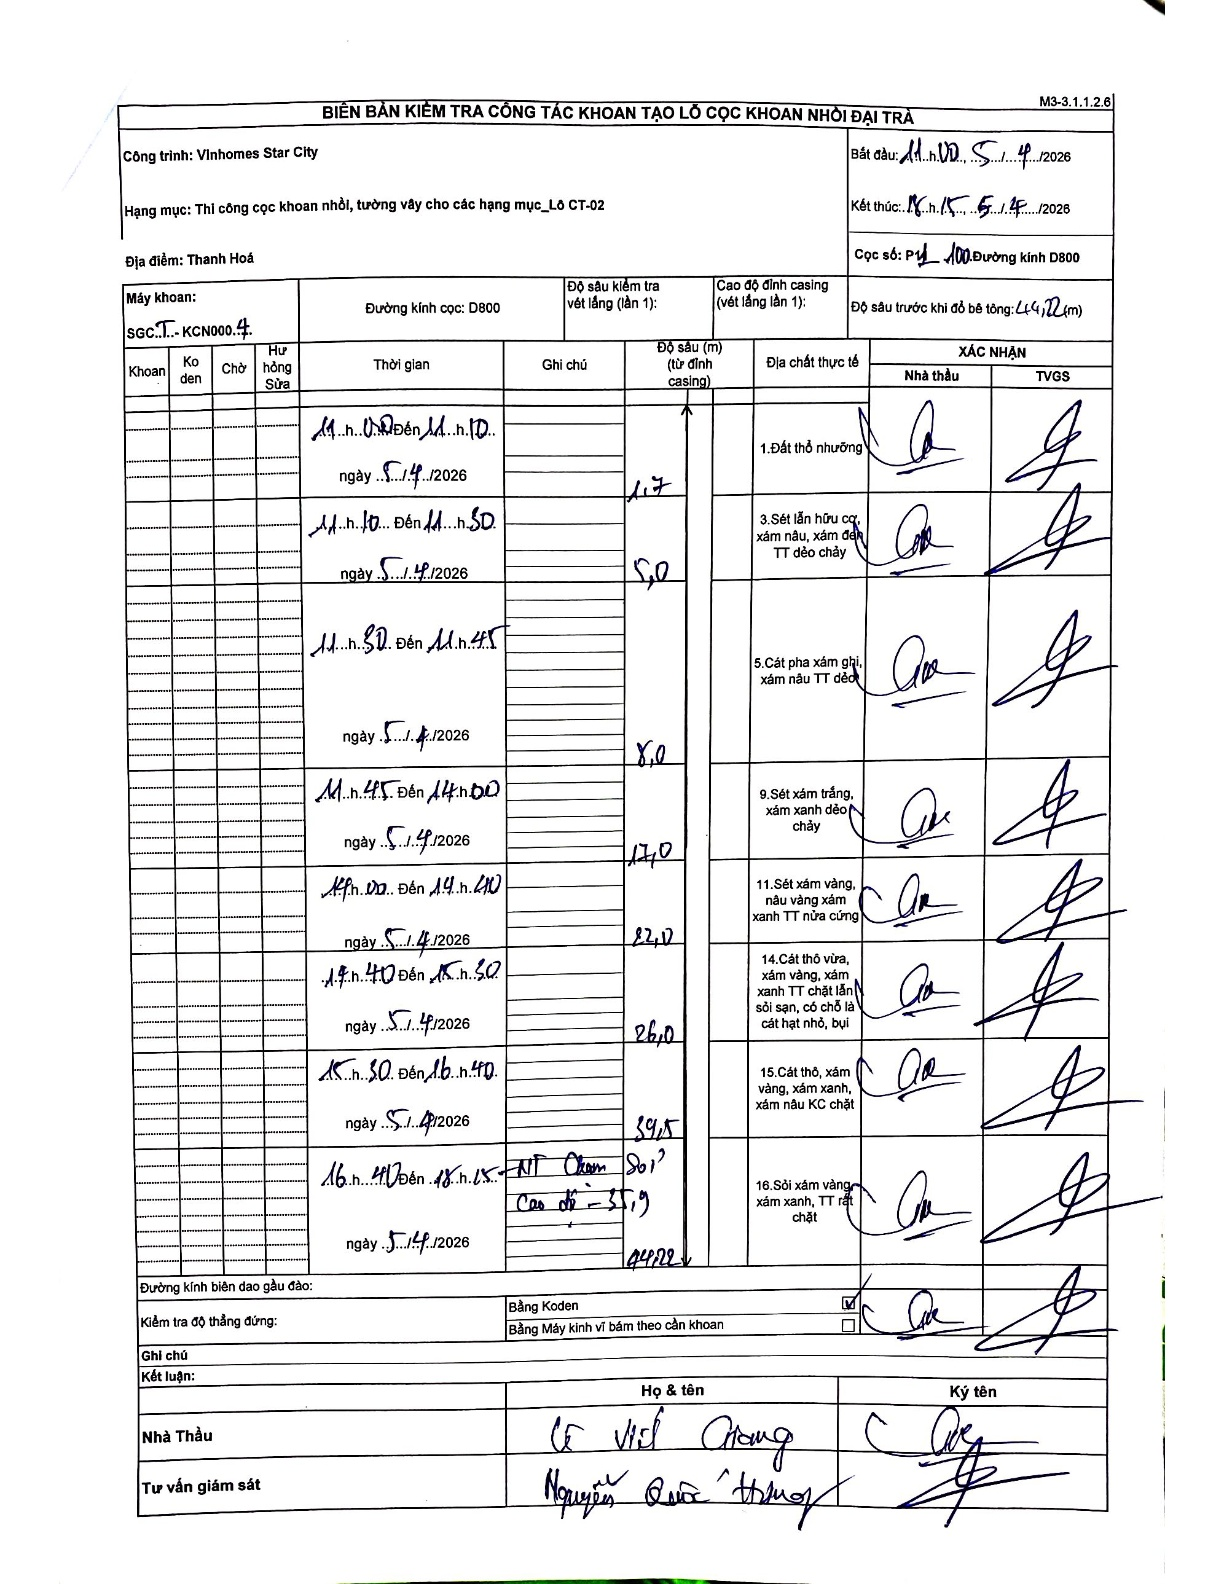 M3-3.1.1.2.6
BIÊN BẢN KIỂM TRA CÔNG TÁC KHOAN TẠO LỖ CỌC KHOAN NHỒI ĐẠI TRÀ
Công trình: Vinhomes Star City
Bắt đầu: 11.h.00, 5/4/2026
Hạng mục: Thi công cọc khoan nhồi, tường vây cho các hạng mục_Lô CT-02
Kết thúc: 18.h.15, 5/4/2026
Địa điểm: Thanh Hoá
Cọc số: P11_100 Đường kính D800
Máy khoan:
SGC.T.- KCN000.7.
Đường kính cọc: D800
Độ sâu kiểm tra vét lắng (lần 1):
Cao độ đỉnh casing (vét lắng lần 1):
Độ sâu trước khi đổ bê tông: 44,22(m)
Khoan Ko den Chờ Hư hỏng Sửa Thời gian Ghi chú Độ sâu (m) (từ đỉnh casing) Địa chất thực tế XÁC NHẬN
Nhà thầu TVGS
11.h.00 Đến 11.h.10
ngày 5/4/2026
1,7
1.Đất thổ nhưỡng
11.h.10 Đến 11.h.30
ngày 5/4/2026
5,0
3.Sét lẫn hữu cơ, xám nâu, xám đen TT dẻo chảy
11.h.30 Đến 11.h.45
ngày 5/4/2026
8,0
5.Cát pha xám ghi, xám nâu TT dẻo
11.h.45 Đến 14.h.00
ngày 5/4/2026
17,0
9.Sét xám trắng, xám xanh dẻo chảy
14.h.00 Đến 14.h.40
ngày 5/4/2026
22,0
11.Sét xám vàng, nâu vàng xám xanh TT nửa cứng
14.h.40 Đến 15.h.30
ngày 5/4/2026
26,0
14.Cát thô vừa, xám vàng, xám xanh TT chặt lẫn sỏi sạn, có chỗ là cát hạt nhỏ, bụi
15.h.30 Đến 16.h.40
ngày 5/4/2026
39,5
15.Cát thô, xám vàng, xám xanh, xám nâu KC chặt
16.h.40 Đến 18.h.15
NT Chạm Sỏi
Cao độ - 35,9
ngày 5/4/2026
44,22
16.Sỏi xám vàng, xám xanh, TT rất chặt
Đường kính biên dao gầu đào:
Kiểm tra độ thẳng đứng:
Bằng Koden
Bằng Máy kinh vĩ bám theo cần khoan
Ghi chú
Kết luận:
Họ & tên Ký tên
Nhà Thầu Lê Viết Giang
Tư vấn giám sát Nguyễn Quốc Hùng